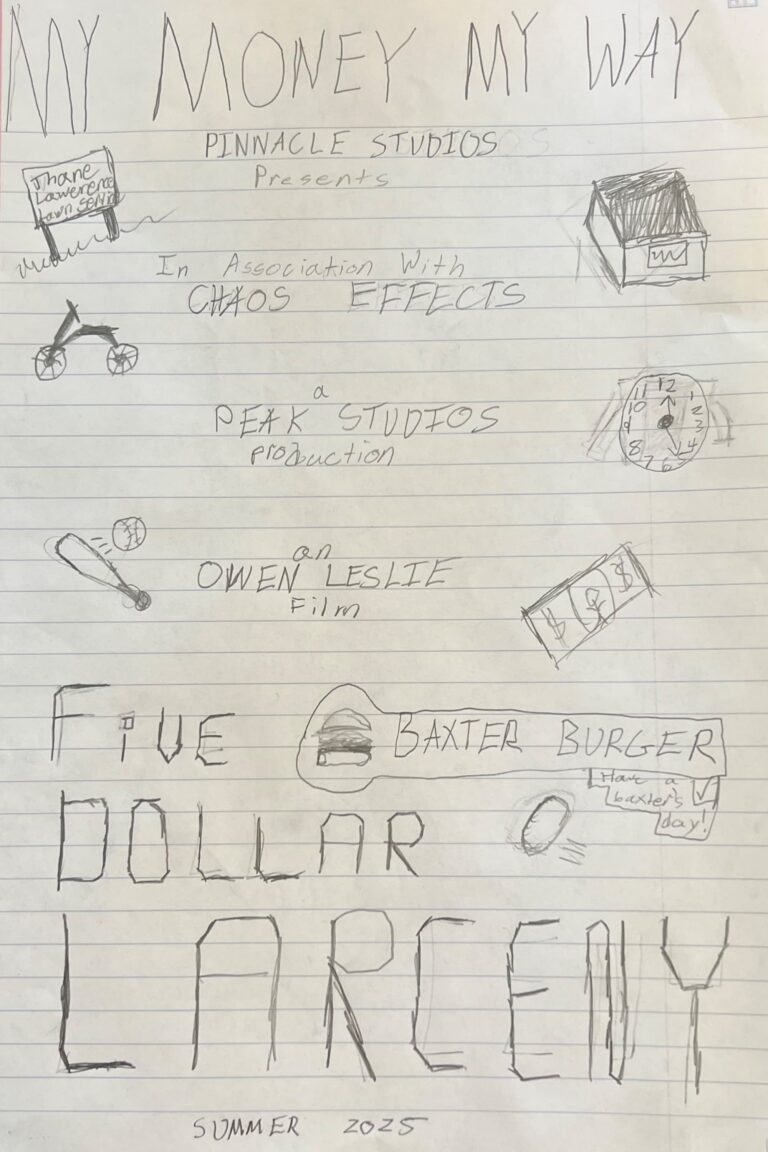 MY MONEY MY WAY
PINNACLE STUDIOS
Presents
Jhane
Lawerence
Lawn Service
In Association With
CHAOS EFFECTS
a
PEAK STUDIOS
production
11 12 1
10 2
9 3
8 4
7 6 5
an
OWEN LESLIE
Film
$ $ $
FiVE
BAXTER BURGER
Have a
baxter's
day!
DOLLAR
LARCENY
SUMMER 2025